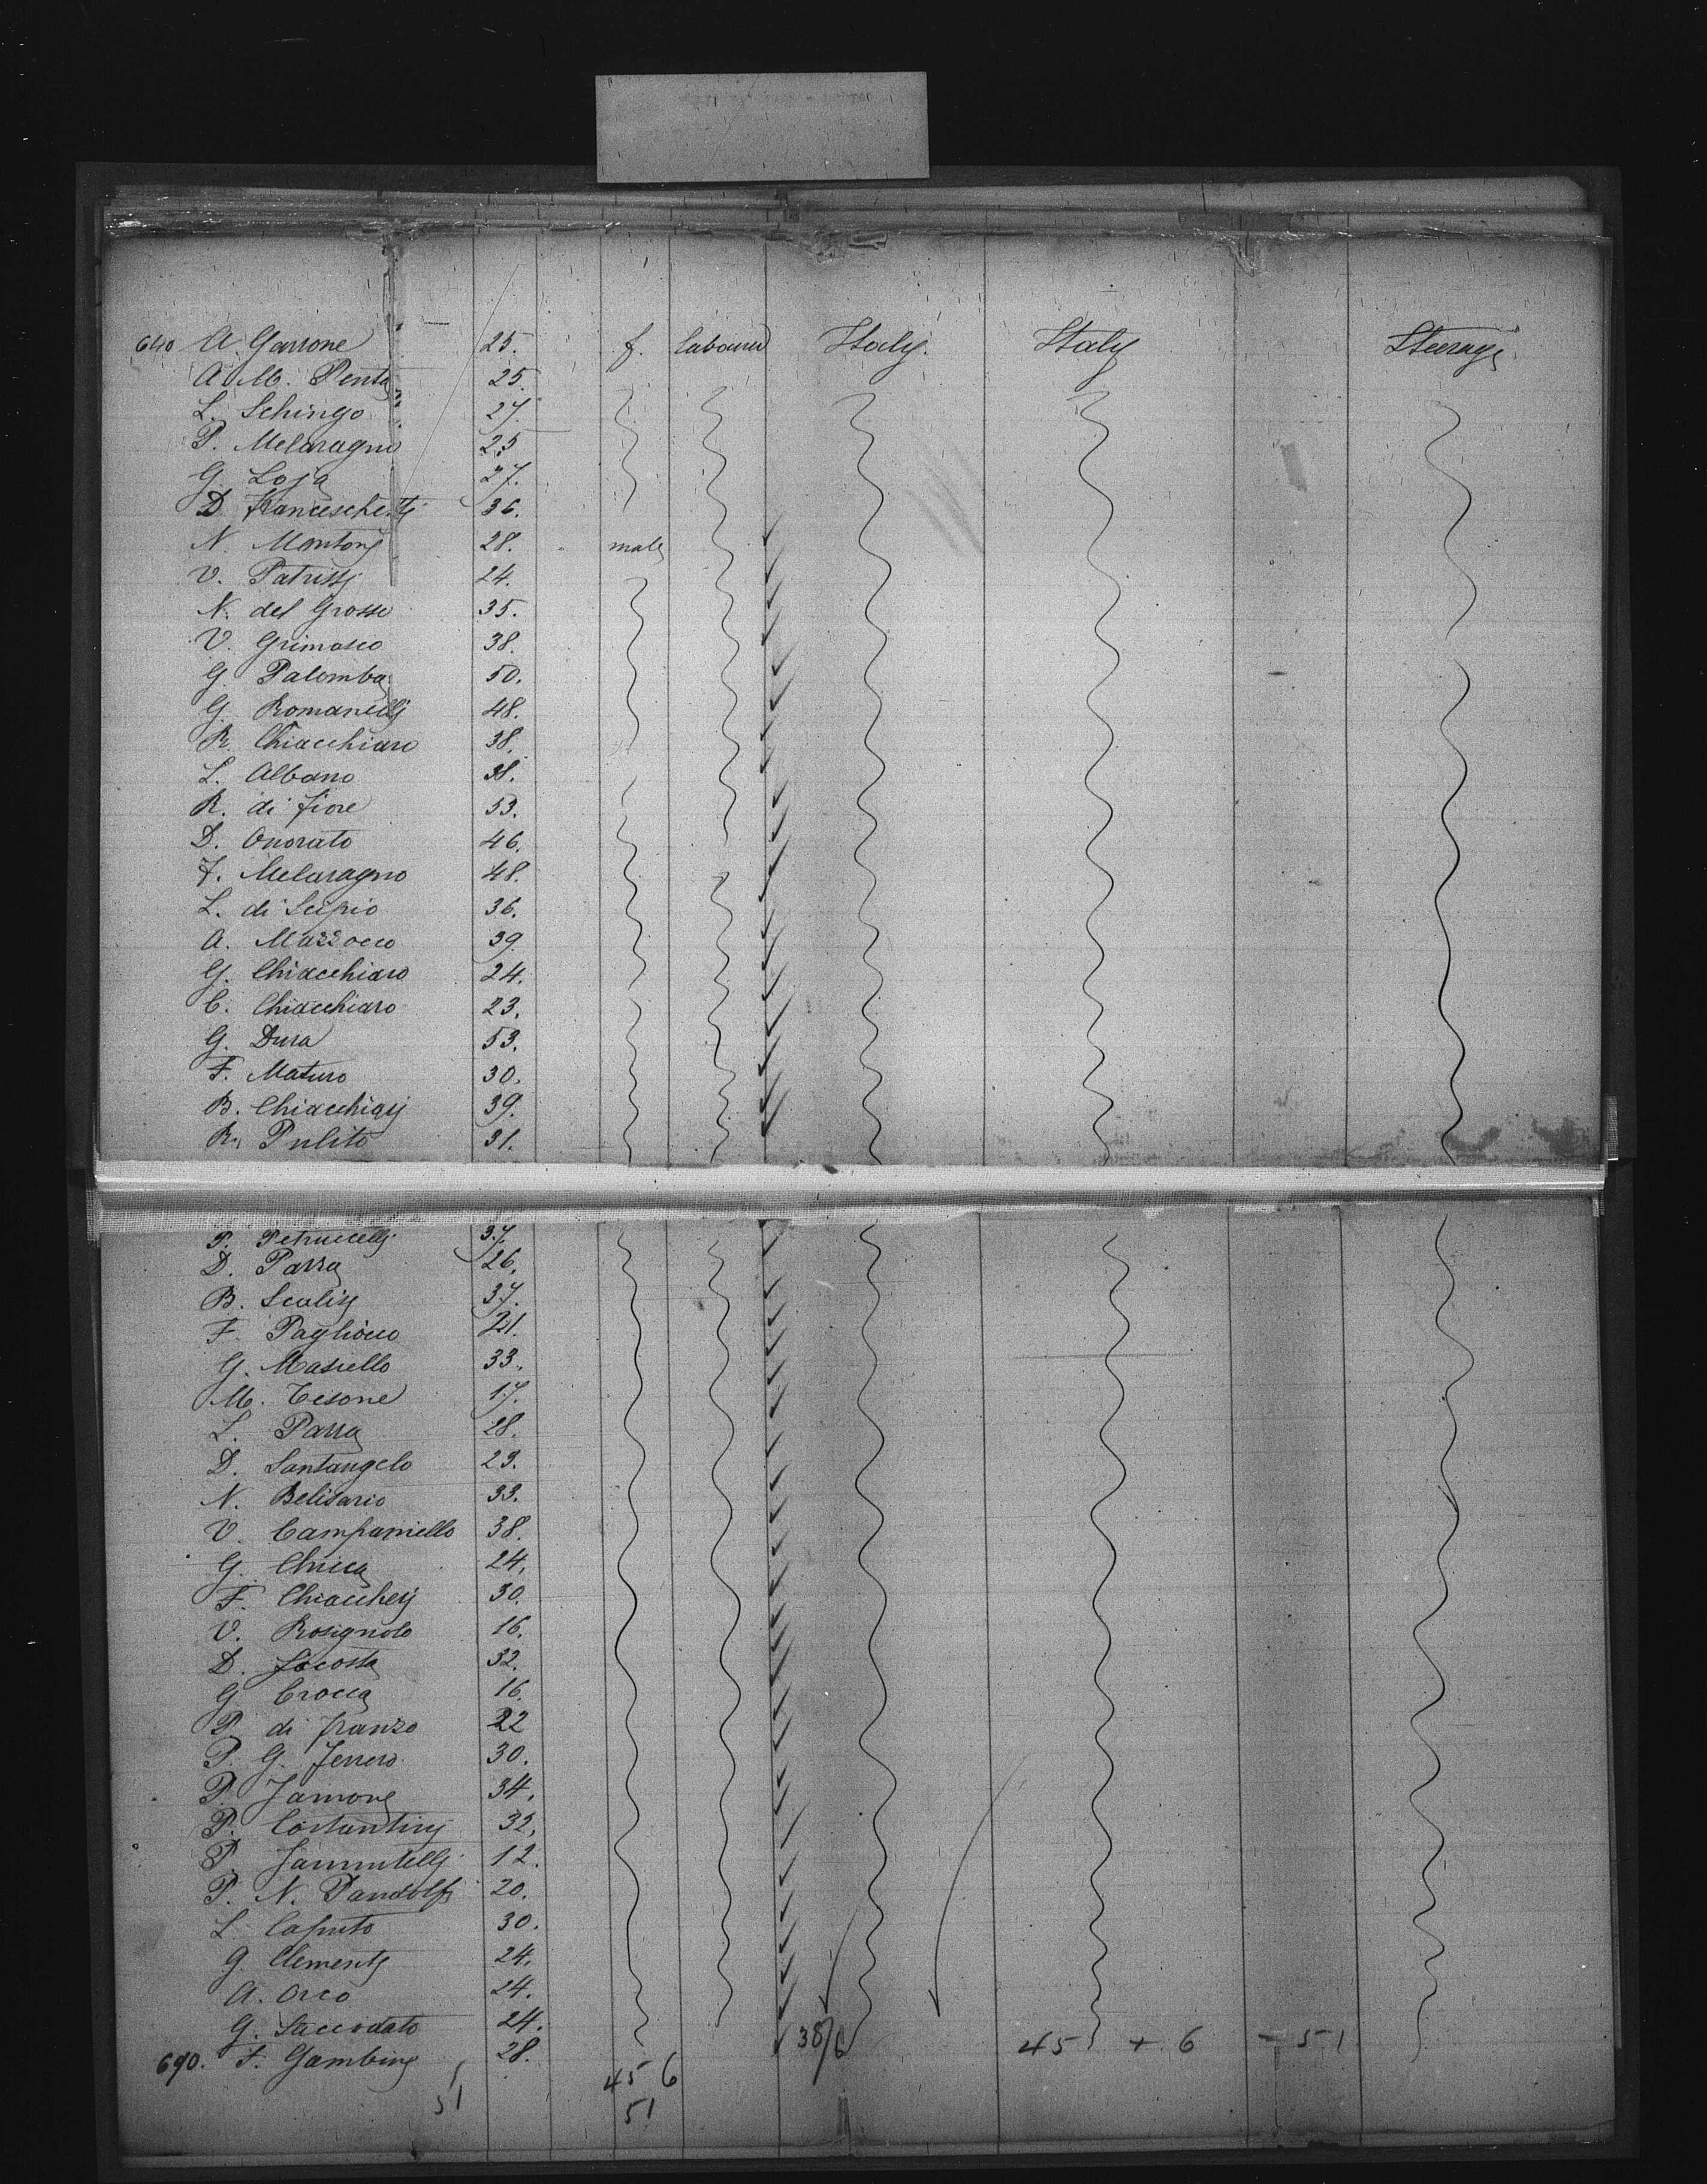 640 A. Garrone 25. f. labourer Italy. Italy Steerage
A. M. Penta 25.
L. Schingo 27.
P. Melaragno 25
G. Loja 27.
D. Franceschetti 36.
N. Montony 28. male
V. Patrissi 24.
N. del Grosso 35.
V. Grimasco 38.
G. Palomba 50.
G. Romanelli 48.
R. Chiacchiaro 38.
L. Albano 38.
R. di fiore 53.
D. Onorato 46.
F. Melaragno 48.
L. di Scipio 36.
A. Mazzocco 39.
G. Chiacchiaro 24.
C. Chiacchiaro 23.
G. Dura 53.
F. Maturo 30.
B. Chiacchiary 39.
R. Pulito 31.
P. Petruccelli 37.
D. Parra 26.
B. Scalisy 37.
F. Pagliocco 21.
G. Masiello 33.
M. Tesone 17.
L. Parra 28.
D. Santangelo 23.
N. Belisario 33.
V. Campaniello 38.
G. Chicca 24.
F. Chiacchery 30.
V. Rosignolo 16.
D. Jocosta 32.
G. Crocca 16.
P. di franzo 22
P. G. Ferrero 30.
P. Jamony 34.
P. Costantiny 32.
P. Jannitelli 12.
P. N. Pandolfi 20.
L. Caputo 30.
G. Clementy 24.
A. Orco 24.
G. Saccodato 24.
690. F. Gambiny 28. 38/6 45 + 6 = 51
51 45 6
51